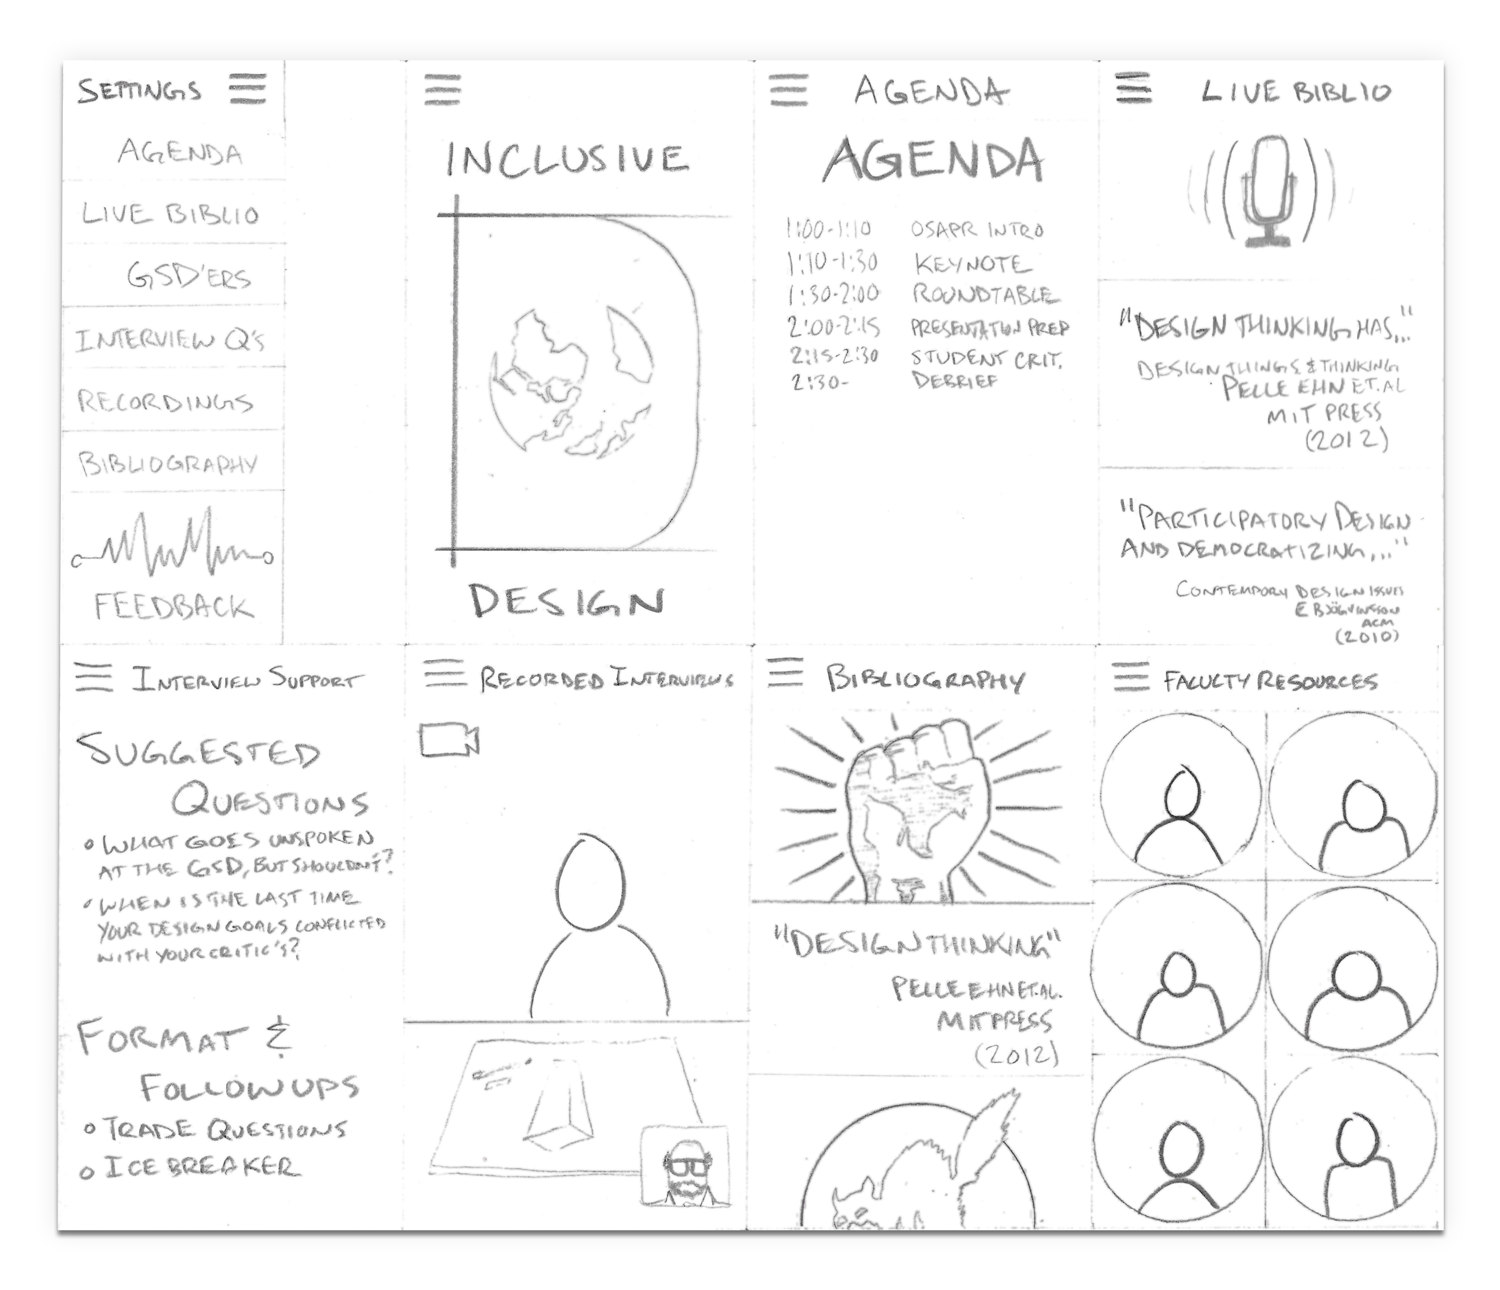 SETTINGS
AGENDA
LIVE BIBLIO
GSD'ERS
INTERVIEW Q'S
RECORDINGS
BIBLIOGRAPHY
FEEDBACK
INCLUSIVE
DESIGN
AGENDA
AGENDA
1:00-1:10 OSAPR INTRO
1:10-1:30 KEYNOTE
1:30-2:00 ROUNDTABLE
2:00-2:15 PRESENTATION PREP
2:15-2:30 STUDENT CRIT.
2:30- DEBRIEF
LIVE BIBLIO
"DESIGN THINKING HAS..."
DESIGN THINGS & THINKING
PELLE EHN ET.AL
MIT PRESS
(2012)
"PARTICIPATORY DESIGN
AND DEMOCRATIZING,..."
CONTEMPORY DESIGN ISSUES
E BJÖGVINSSON
ACM
(2010)
INTERVIEW SUPPORT
SUGGESTED
QUESTIONS
WHAT GOES UNSPOKEN
AT THE GSD, BUT SHOULDN'T?
WHEN IS THE LAST TIME
YOUR DESIGN GOALS CONFLICTED
WITH YOUR CRITIC'S?
FORMAT &
FOLLOWUPS
TRADE QUESTIONS
ICE BREAKER
RECORDED INTERVIEWS
BIBLIOGRAPHY
"DESIGN THINKING"
PELLE EHN ET.AL.
MIT PRESS
(2012)
FACULTY RESOURCES